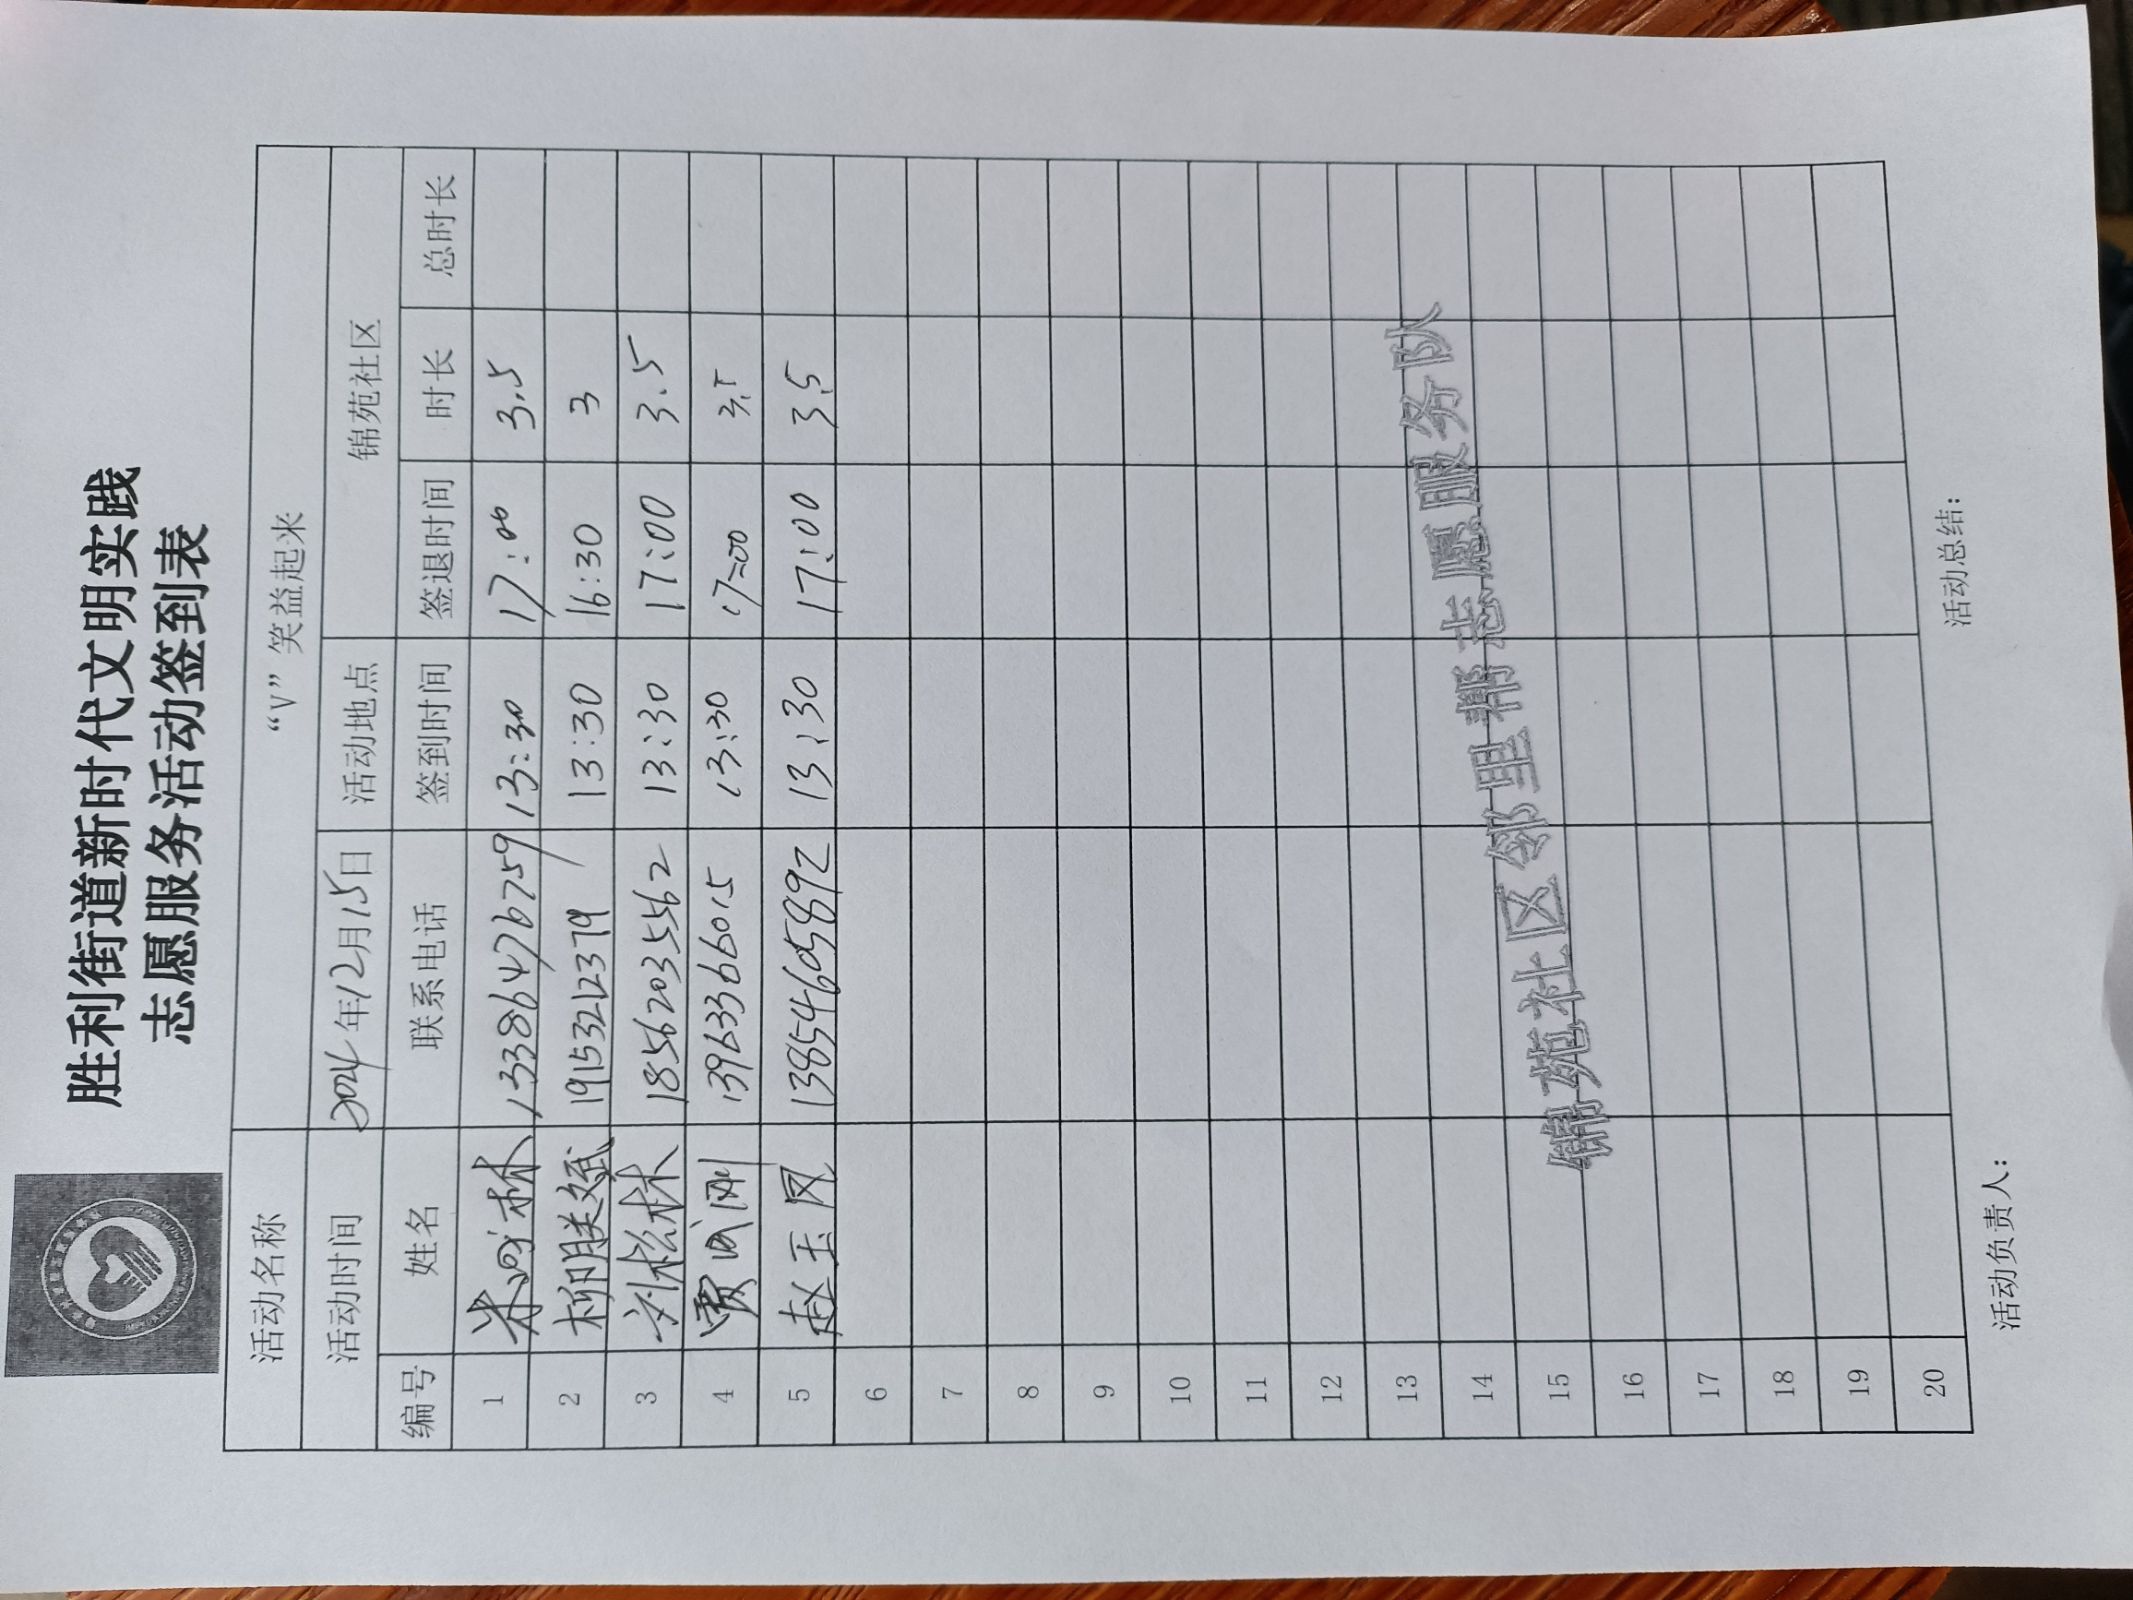 胜利街道新时代文明实践
志愿服务活动签到表
活动名称 “V”笑益起来
活动时间 2024年12月15日 活动地点 锦苑社区
编号 姓名 联系电话 签到时间 签退时间 时长 总时长
1 13386476759 13:30 17:00 3.5
2 柳朕斌 19153212379 13:30 16:30 3
3 刘松林 18562035562 13:30 17:00 3.5
4 贾成刚 13963366015 13:30 17:00 3.5
5 赵玉凤 13854605892 13:30 17:00 3.5
6
7
8
9
10
11
12
13
14
15
16
17
18
19
20
锦苑社区邻里帮志愿服务队
活动负责人: 活动总结: